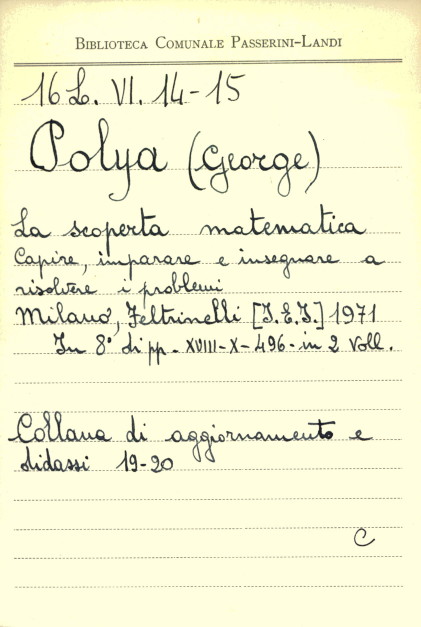 BIBLIOTECA COMUNALE PASSERINI-LANDI
16 L. VI. 14-15
Polya (George)
La scoperta matematica
Capire, imparare e insegnare a
risolvere i problemi
Milano, Feltrinelli [I.E.I.] 1971
In 8° di pp. XVIII-X-496- in 2 voll.
Collana di aggiornamento e
didassi 19-20
C